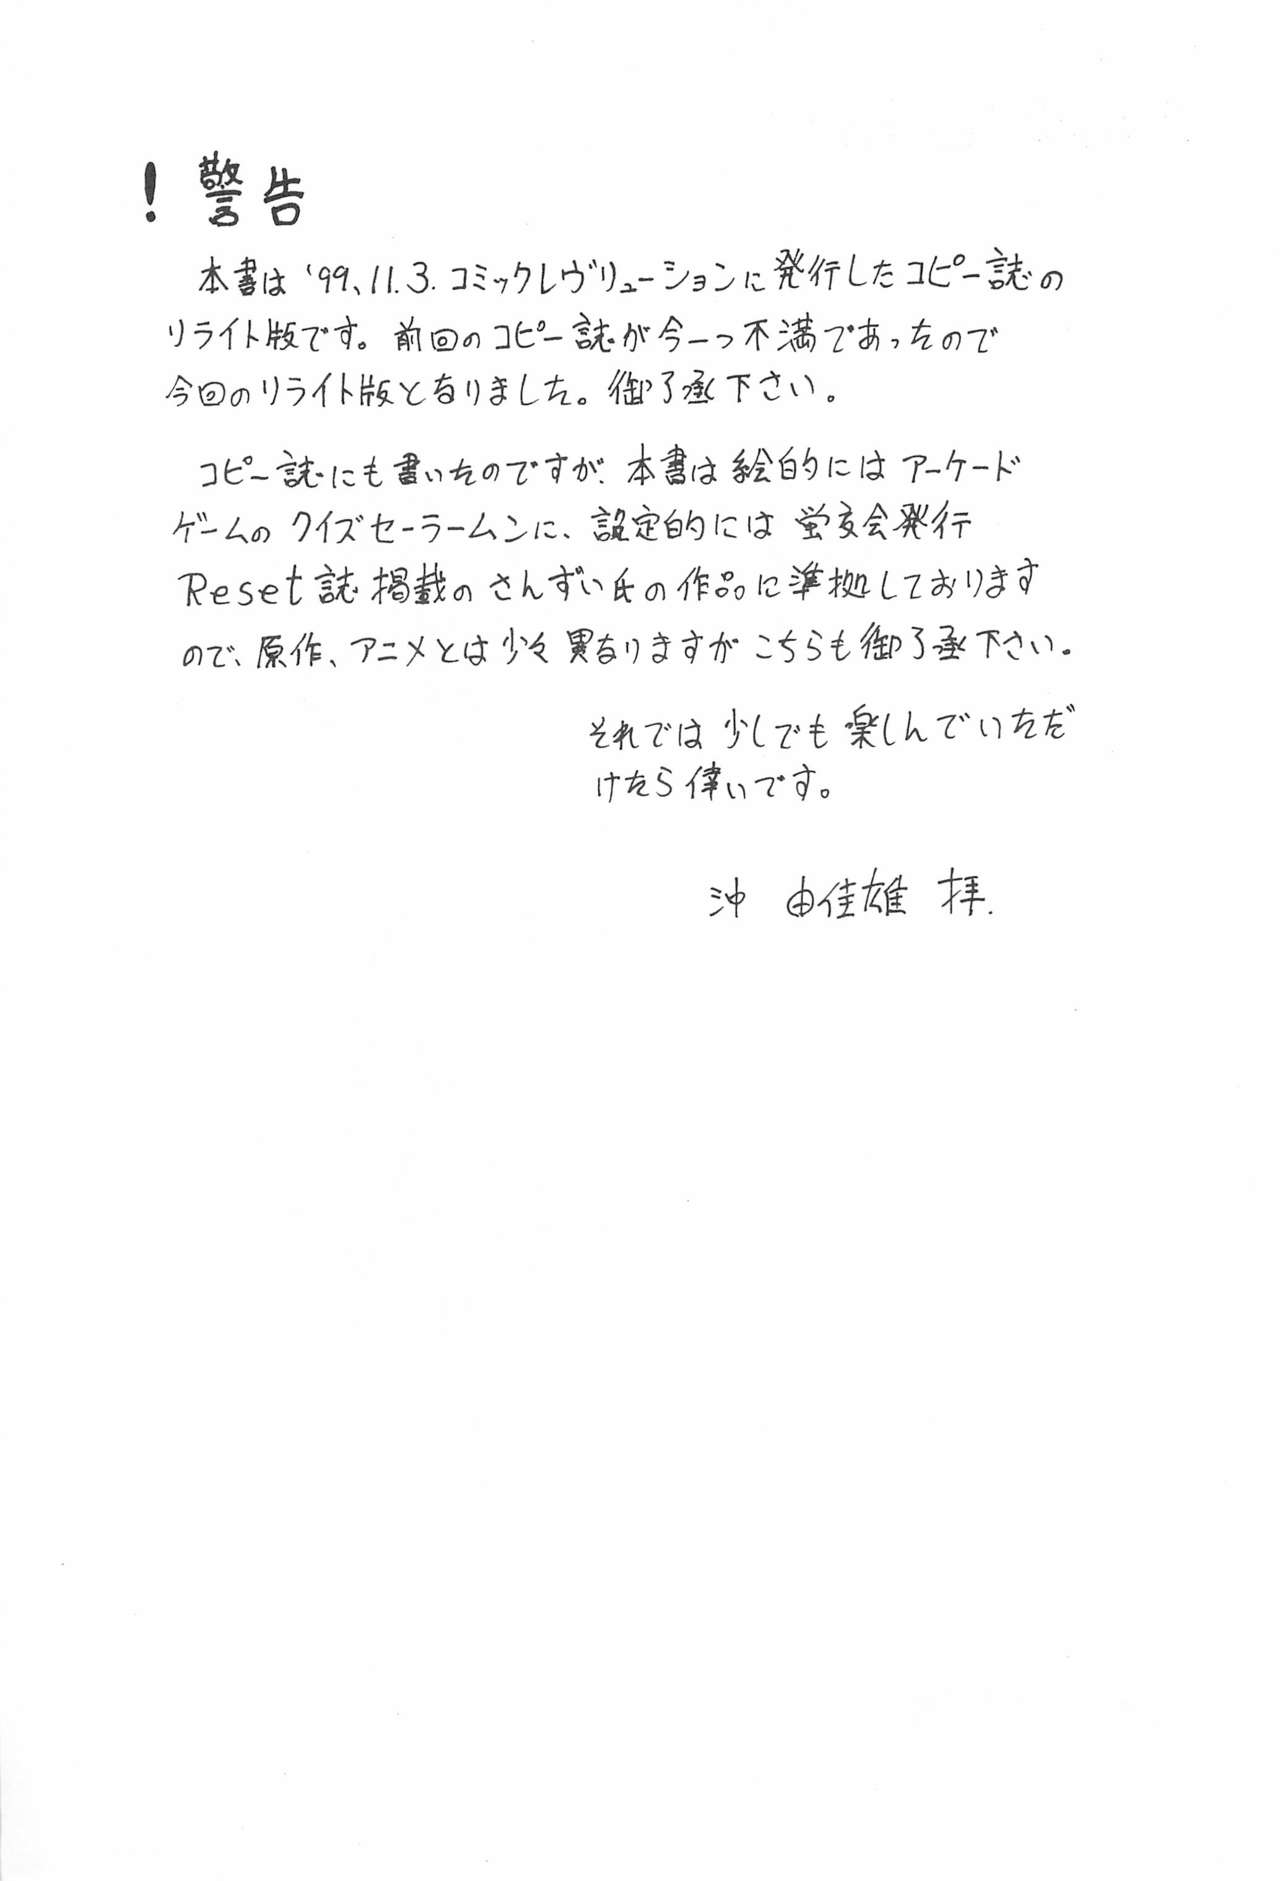 ！警告
本書は '99、11.3. コミックレヴリューションに発行したコピー誌の
リライト版です。前回のコピー誌が今一つ不満であったので
今回のリライト版となりました。御了承下さい。
コピー誌にも書いたのですが、本書は絵的にはアーケード
ゲームのクイズセーラームンに、設定的には蛍友会発行
Reset誌掲載のさんずい氏の作品に準拠しております
ので、原作、アニメとは少々異なりますがこちらも御了承下さい。
それでは少しでも楽しんでいただ
けたら倖いです。
沖 由佳雄 拝.